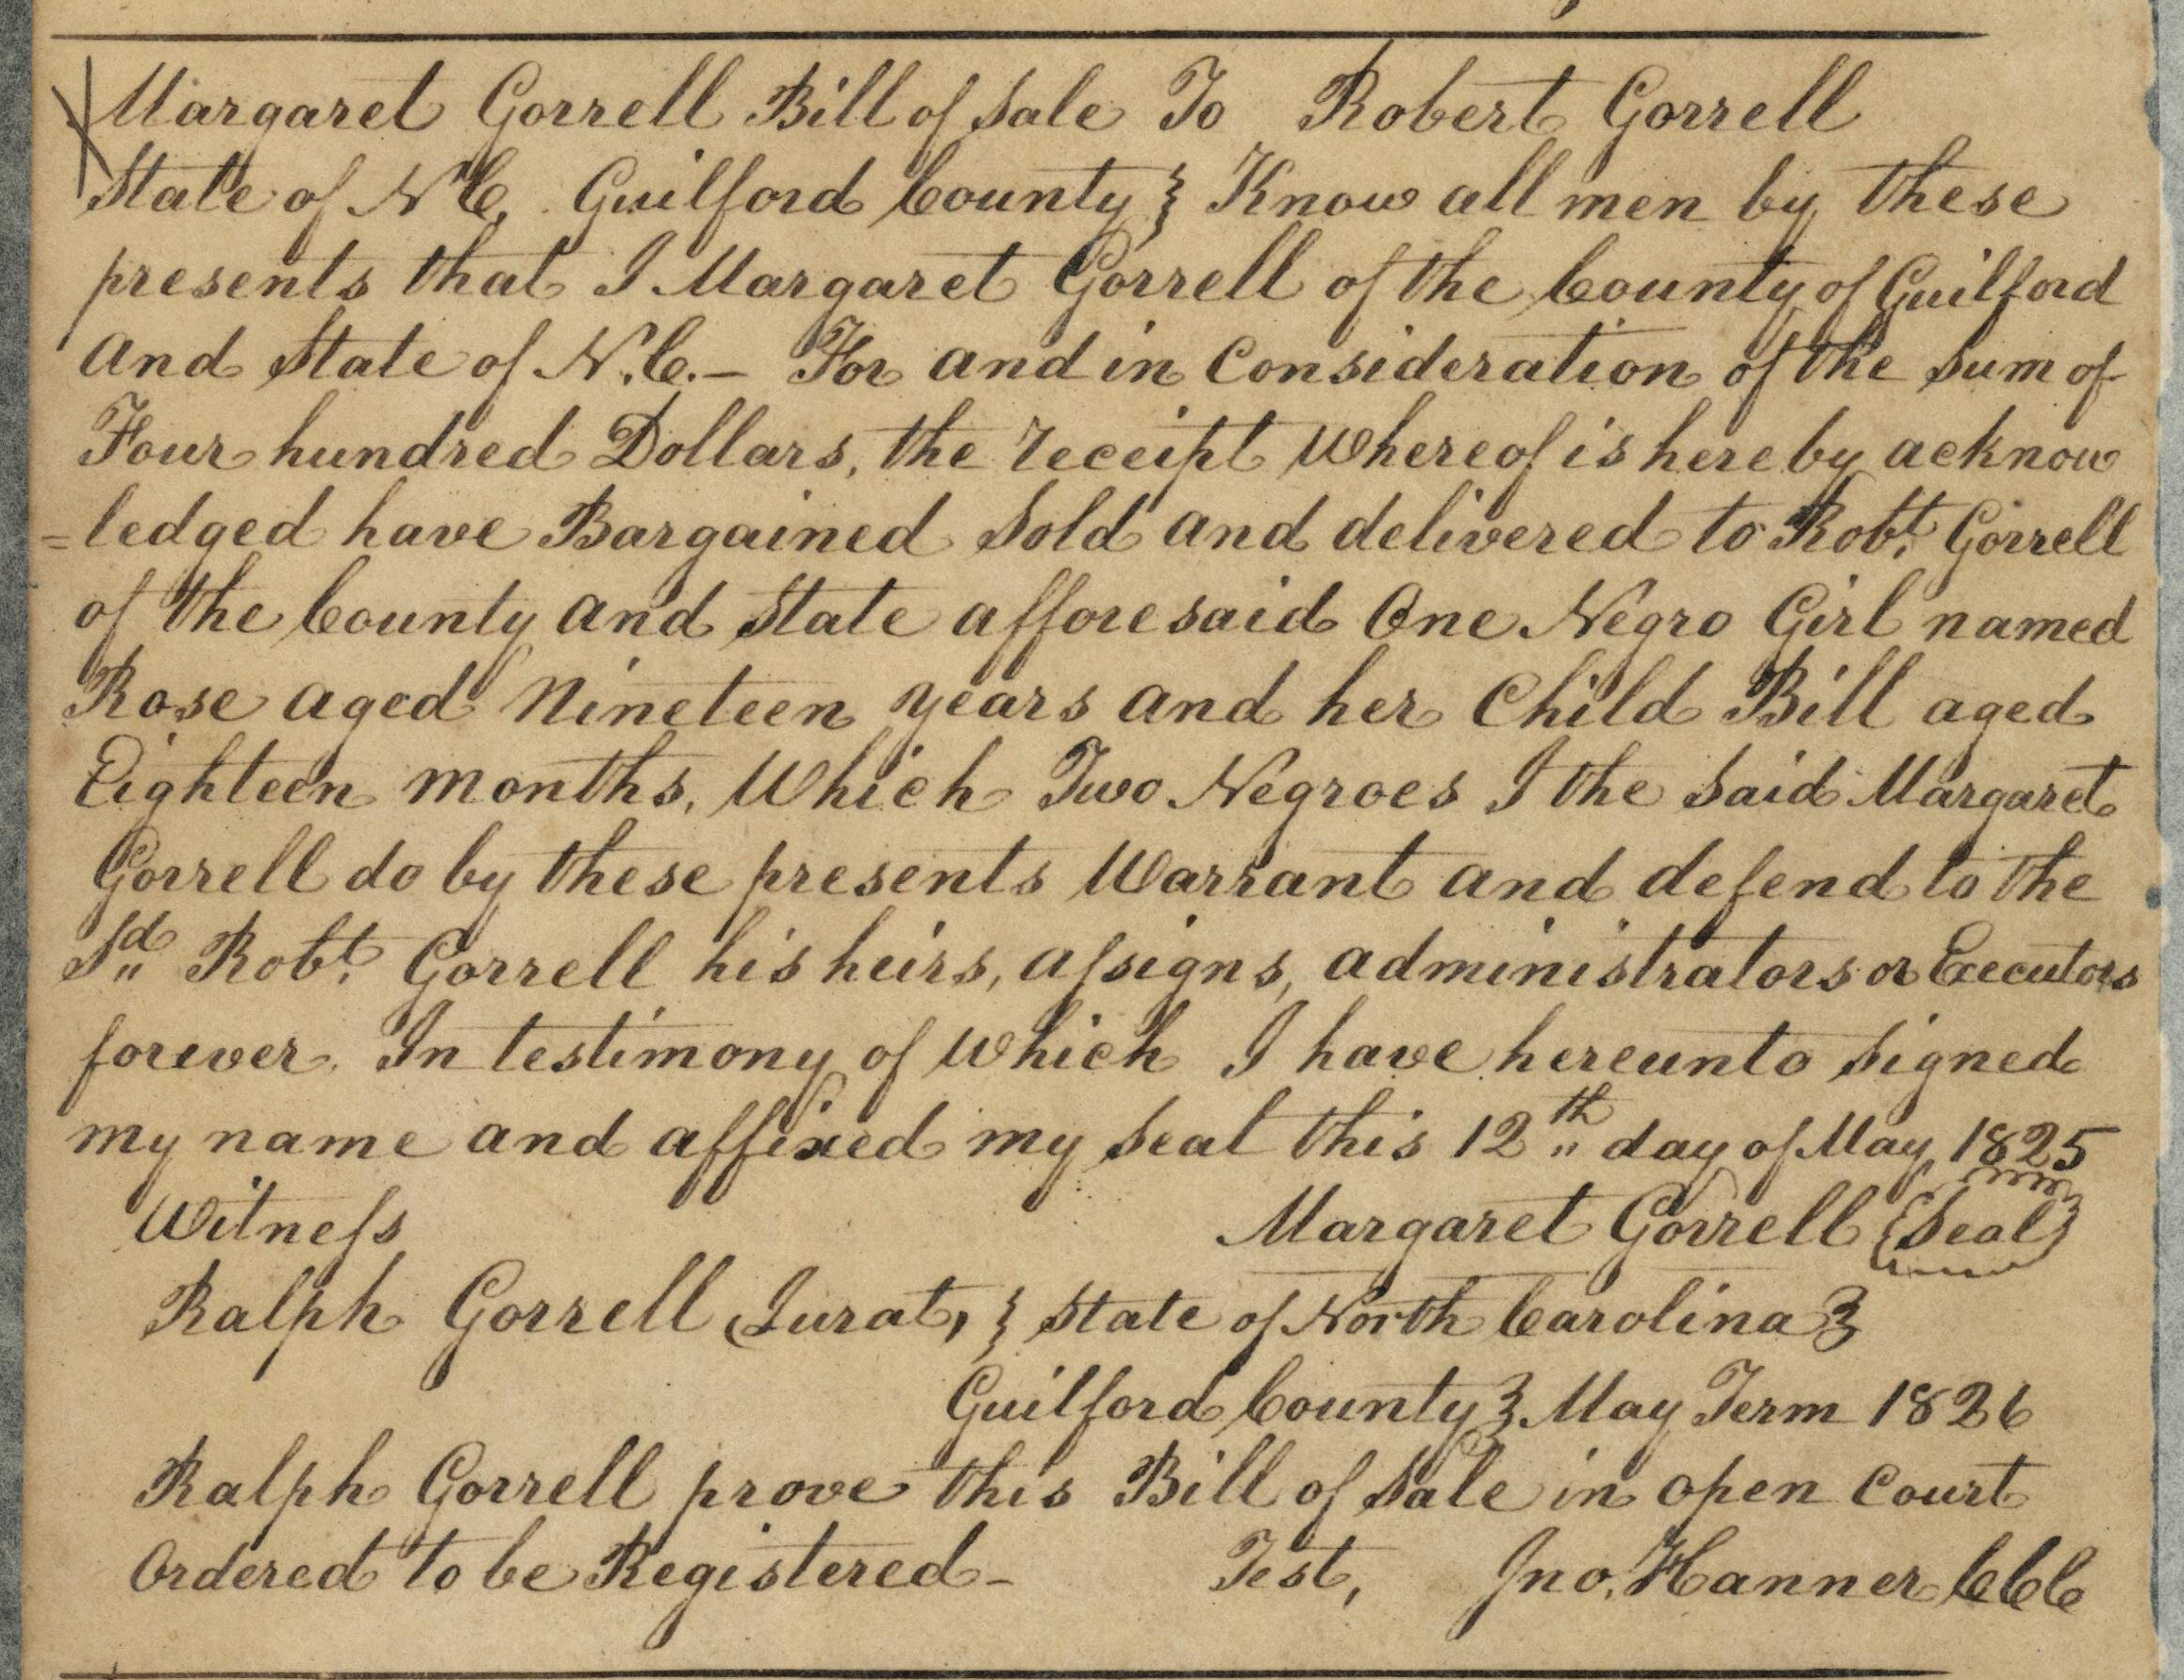 Margaret Gorrell Bill of Sale To Robert Gorrell
State of N C. Guilford County } Know all men by these
presents that I Margaret Gorrell of the County of Guilford
and State of N.C. – For and in Consideration of the Sum of
Four hundred Dollars, the receipt whereof is hereby acknow
=ledged have Bargained Sold and delivered to Robt. Gorrell
of the County and State afforesaid One Negro Girl named
Rose aged Nineteen years and her Child Bill aged
Eighteen months, Which Two Negroes I the Said Margaret
Gorrell do by these presents Warrant and defend to the
Sd. Robt. Gorrell his heirs, assigns, administrators or Executors
forever. In testimony of which I have hereunto Signed
my name and affixed my Seal this 12th day of May 1825
Witness Margaret Gorrell {Seal}
Ralph Gorrell Jurat, } State of North Carolina }
Guilford County } May Term 1826
Ralph Gorrell prove this Bill of Sale in open Court
Ordered to be Registered – Test, Jno. Hanner CCC